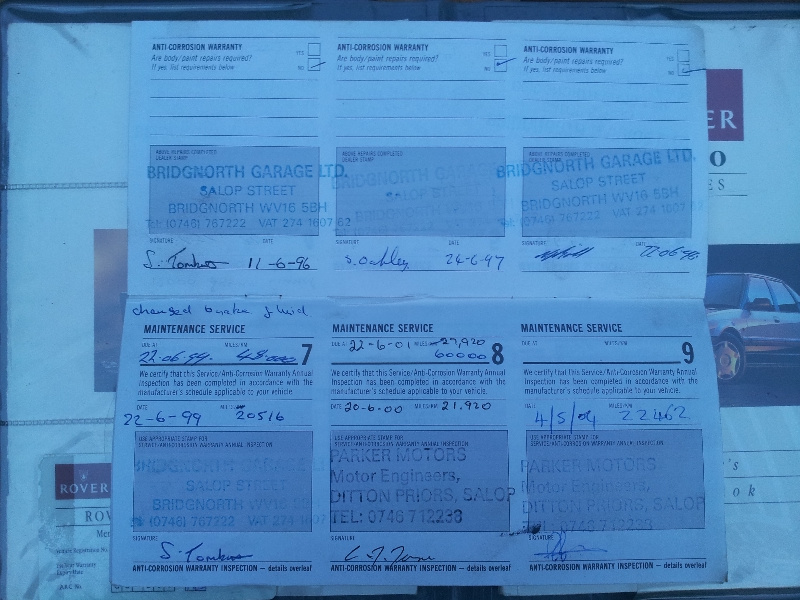 ANTI-CORROSION WARRANTY
Are body/paint repairs required?
If yes, list requirements below
YES
NO
ABOVE REPAIRS COMPLETED
DEALER STAMP
BRIDGNORTH GARAGE LTD.
SALOP STREET
BRIDGNORTH WV16 5BH
Tel: (0746) 767222 VAT 274 1607 62
SIGNATURE DATE
S. Tomkins 11-6-96
ANTI-CORROSION WARRANTY
Are body/paint repairs required?
If yes, list requirements below
YES
NO
ABOVE REPAIRS COMPLETED
DEALER STAMP
BRIDGNORTH GARAGE LTD.
SALOP STREET
SIGNATURE DATE
S. Oakley 24-6-97
ANTI-CORROSION WARRANTY
Are body/paint repairs required?
If yes, list requirements below
YES
NO
ABOVE REPAIRS COMPLETED
DEALER STAMP
BRIDGNORTH GARAGE LTD.
SALOP STREET
BRIDGNORTH WV16 5BH
(0746) 767222 VAT 274 1607
SIGNATURE DATE
22-06-98
changed brake fluid
MAINTENANCE SERVICE
DUE AT MILES/KM
22-06-99. 48000 7
We certify that this Service/Anti-Corrosion Warranty Annual
Inspection has been completed in accordance with the
manufacturer's schedule applicable to your vehicle.
DATE
22-6-99 20516
USE APPROPRIATE STAMP FOR
SERVICE/ANTI-CORROSION WARRANTY ANNUAL INSPECTION
BRIDGNORTH GARAGE
SALOP STREET
BRIDGNORTH WV16
(0746) 767222 VAT 274 16
SIGNATURE
S. Tomkins
ANTI-CORROSION WARRANTY INSPECTION – details overleaf
MAINTENANCE SERVICE
DUE AT 22-6-01 MILES 27,920
60000 8
We certify that this Service/Anti-Corrosion Warranty Annual
Inspection has been completed in accordance with the
manufacturer's schedule applicable to your vehicle.
DATE 20-6-00 MILES/KM 21.920
USE APPROPRIATE STAMP FOR
SERVICE/ANTI-CORROSION WARRANTY ANNUAL INSPECTION
PARKER MOTORS
Motor Engineers,
DITTON PRIORS, SALOP
TEL: 0746 712238
SIGNATURE
ANTI-CORROSION WARRANTY INSPECTION – details overleaf
MAINTENANCE SERVICE
DUE AT MILES/KM
9
We certify that this Service/Anti-Corrosion Warranty Annual
Inspection has been completed in accordance with the
manufacturer's schedule applicable to your vehicle.
DATE MILES/KM
4/5/04 22462
USE APPROPRIATE STAMP FOR
SERVICE/ANTI-CORROSION WARRANTY ANNUAL INSPECTION
PARKER MOTORS
Motor Engineers,
DITTON PRIORS, SALOP
0746 712238
SIGNATURE
ANTI-CORROSION WARRANTY INSPECTION – details overleaf
ER
O
ES
's
ok
ROVER
ROV